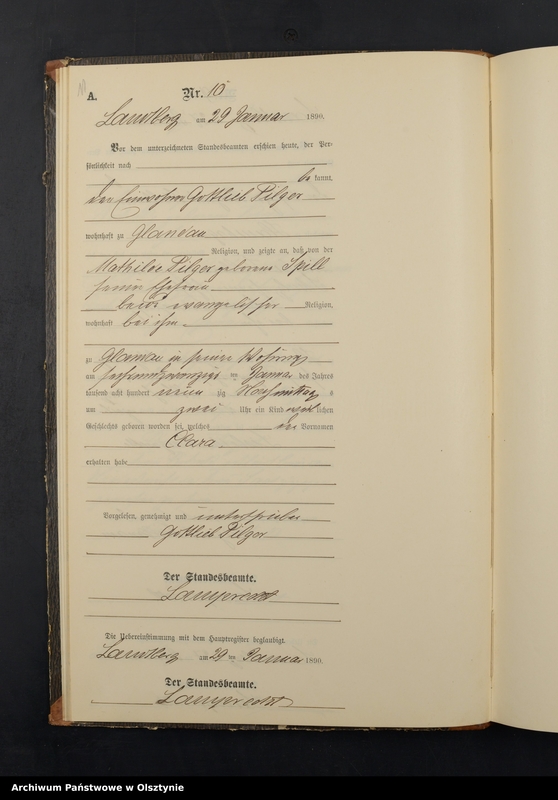 A.
Nr. 10
Landsberg am 29 Januar 1890.
Vor dem unterzeichneten Standesbeamten erschien heute, der Per-
sönlichkeit nach
be kannt,
der Einwohner Gottlieb Pilger
wohnhaft zu Glandau
Religion, und zeigte an, daß von der
Mathilde Pilger geborene Spill
seiner Ehefrau
beide evangelischer Religion,
wohnhaft bei ihm
zu Glandau in seiner Wohnung
am ten Januar des Jahres
tausend acht hundert neun zig Nachmittag s
um zwei Uhr ein Kind weib lichen
Geschlechts geboren worden sei, welches den Vornamen
Clara
erhalten habe
Vorgelesen, genehmigt und unterschrieben
Gottlieb Pilger
Der Standesbeamte.
Lamprecht
Die Uebereinstimmung mit dem Hauptregister beglaubigt.
Landsberg am 29 ten Januar 1890.
Der Standesbeamte.
Lamprecht
Archiwum Państwowe w Olsztynie